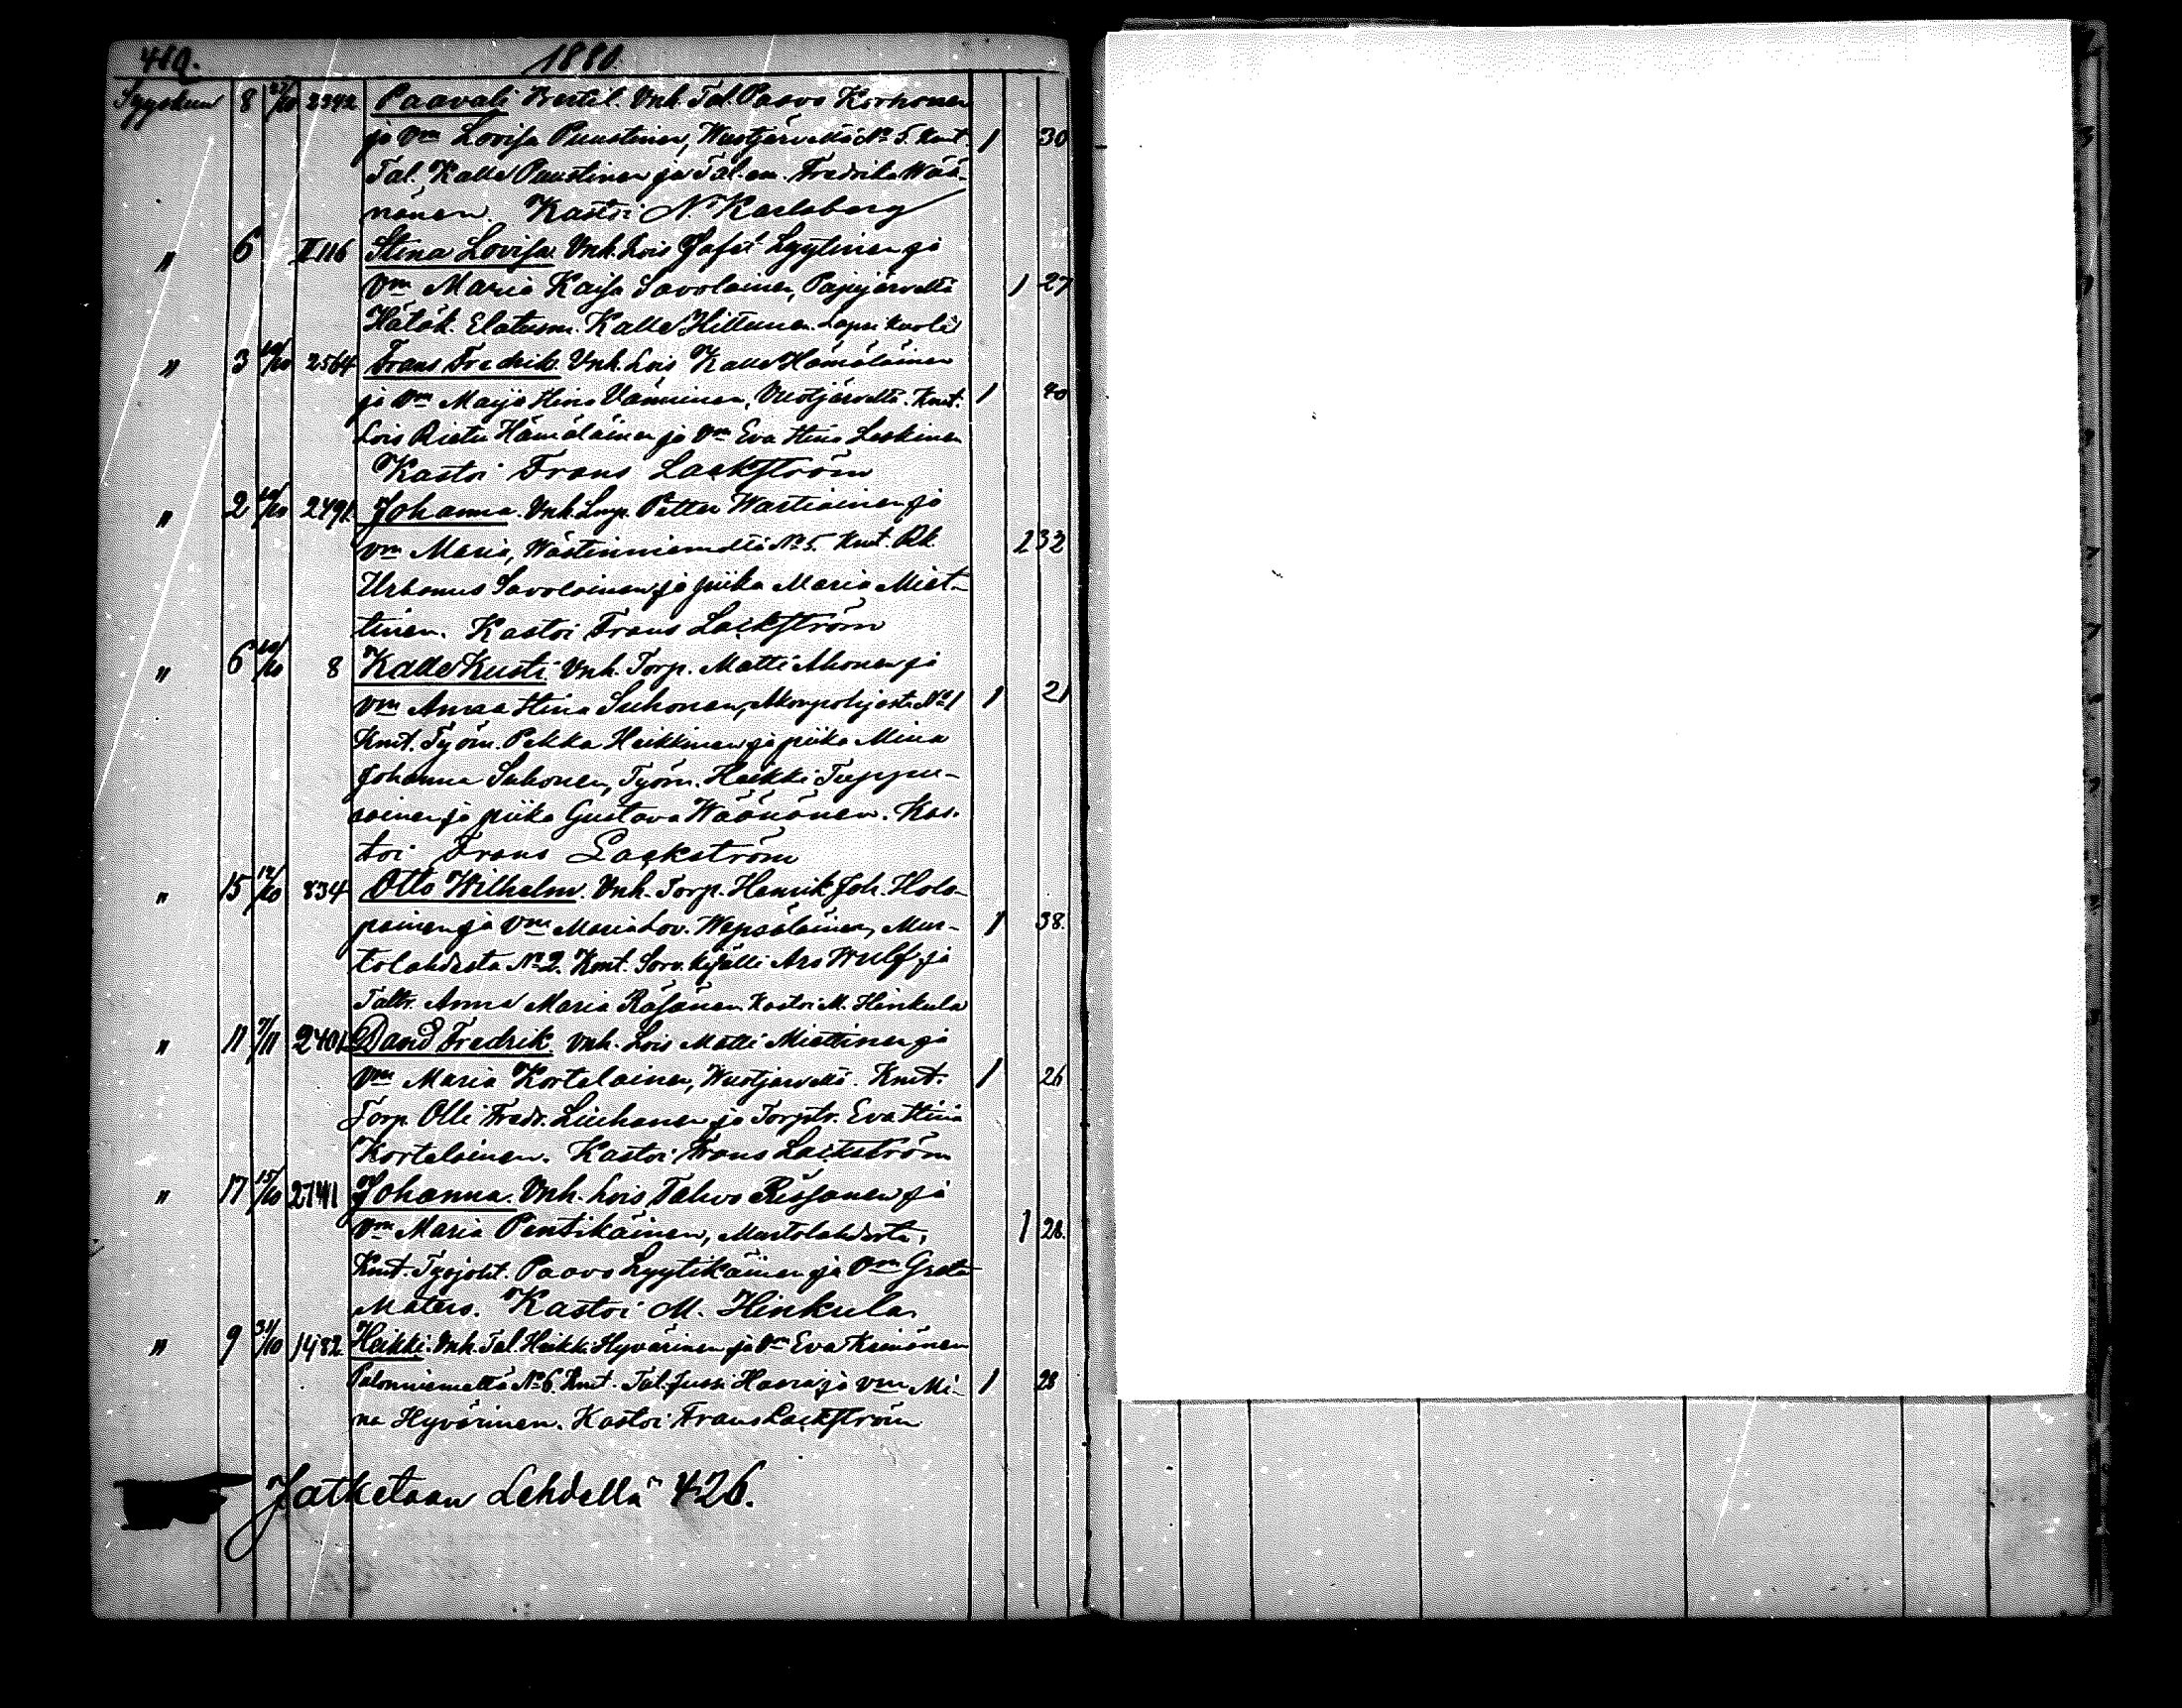 410. 1880.
Syyskuu 8 27/10 2342 Paavali Bertil. Vnh. Tal. Paavo Korhonen
ja Vm Lovisa Puustinen, Wuotjärveltä No 5. Kmt. 1 30
Tal. Kalle Puustinen ja Tal. em. Fredrika Wää-
nänen. Kastoi N. Karlsberg
" 6 II 116 Stina Lovisa. Vnh. Lois Gafel Lyytinen ja
Vm Maria Kaisa Savolainen, Pajujärveltä 1 27
Hätäk. Elatusm. Kalle Hiltunen. Lapsi kuoli
" 3 10/10 2564 Frans Fredrik. Vnh. Lois Kalle Hämäläinen
ja Vm Maija Stina Vänninen, Vuotjärveltä. Kmt. 1 40
Lois Rietu Hämäläinen ja Vm Eva Stina Leskinen
Kastoi Frans Lackström
" 2 10/10 2491. Johanna. Vnh. Lmp. Petter Wartiainen ja
Vm Maria, Västinniemeltä No 5. Kmt. Rk. 2 32
Urbanus Savolainen ja piika Maria Miet-
tinen. Kastoi Frans Lackström
" 6 10/10 8 Kalle Kusti. Vnh. Torp. Matti Ahonen ja
Vm Anna Stina Suhonen, Akonpohjasta No 1 1 21
Kmt. Työm. Pekka Heikkinen ja piika Mina
Johanna Suhonen, Työm. Heikki Tuppu-
rainen ja piika Gustava Wäänänen. Kas-
toi Frans Lackström
" 15 12/10 834 Otto Wilhelm. Vnh. Torp. Henrik Joh. Holo-
painen ja Vm Maria Lov. Wepsäläinen, Mus- 1 38.
tolahdesta No 2. Kmt. Sorv. kisälli Aro Wulff ja
Taltr. Anna Maria Räsänen. Kastoi M. Hinkula
" 11 7/11 2401. David Fredrik. Vnh. Lois Matti Miettinen ja
Vm Maria Kortelainen, Wuotjärveltä. Kmt. 1 26
Torp. Olli Fredr. Liuhanen ja Torptr. Eva Stina
Kortelainen. Kastoi Frans Lackström
" 17 15/10 2741 Johanna. Vnh. Lois Tahvo Rissanen ja
Vm Maria Pentikäinen, Mustolahdesta, 1 28.
Kmt. Paavo Lyytikäinen ja Vm Greta
Matero. Kastoi M. Hinkula
" 9 31/10 1482 Heikki. Vnh. Tal. Heikki Hyvärinen ja Vm Eva Keinänen
Palonniemeltä No 6. Kmt. Tal. Jussi Haara ja Vm Mi- 1 28
na Hyvärinen. Kastoi Frans Lackström
Jatketaan Lehdellä 426.